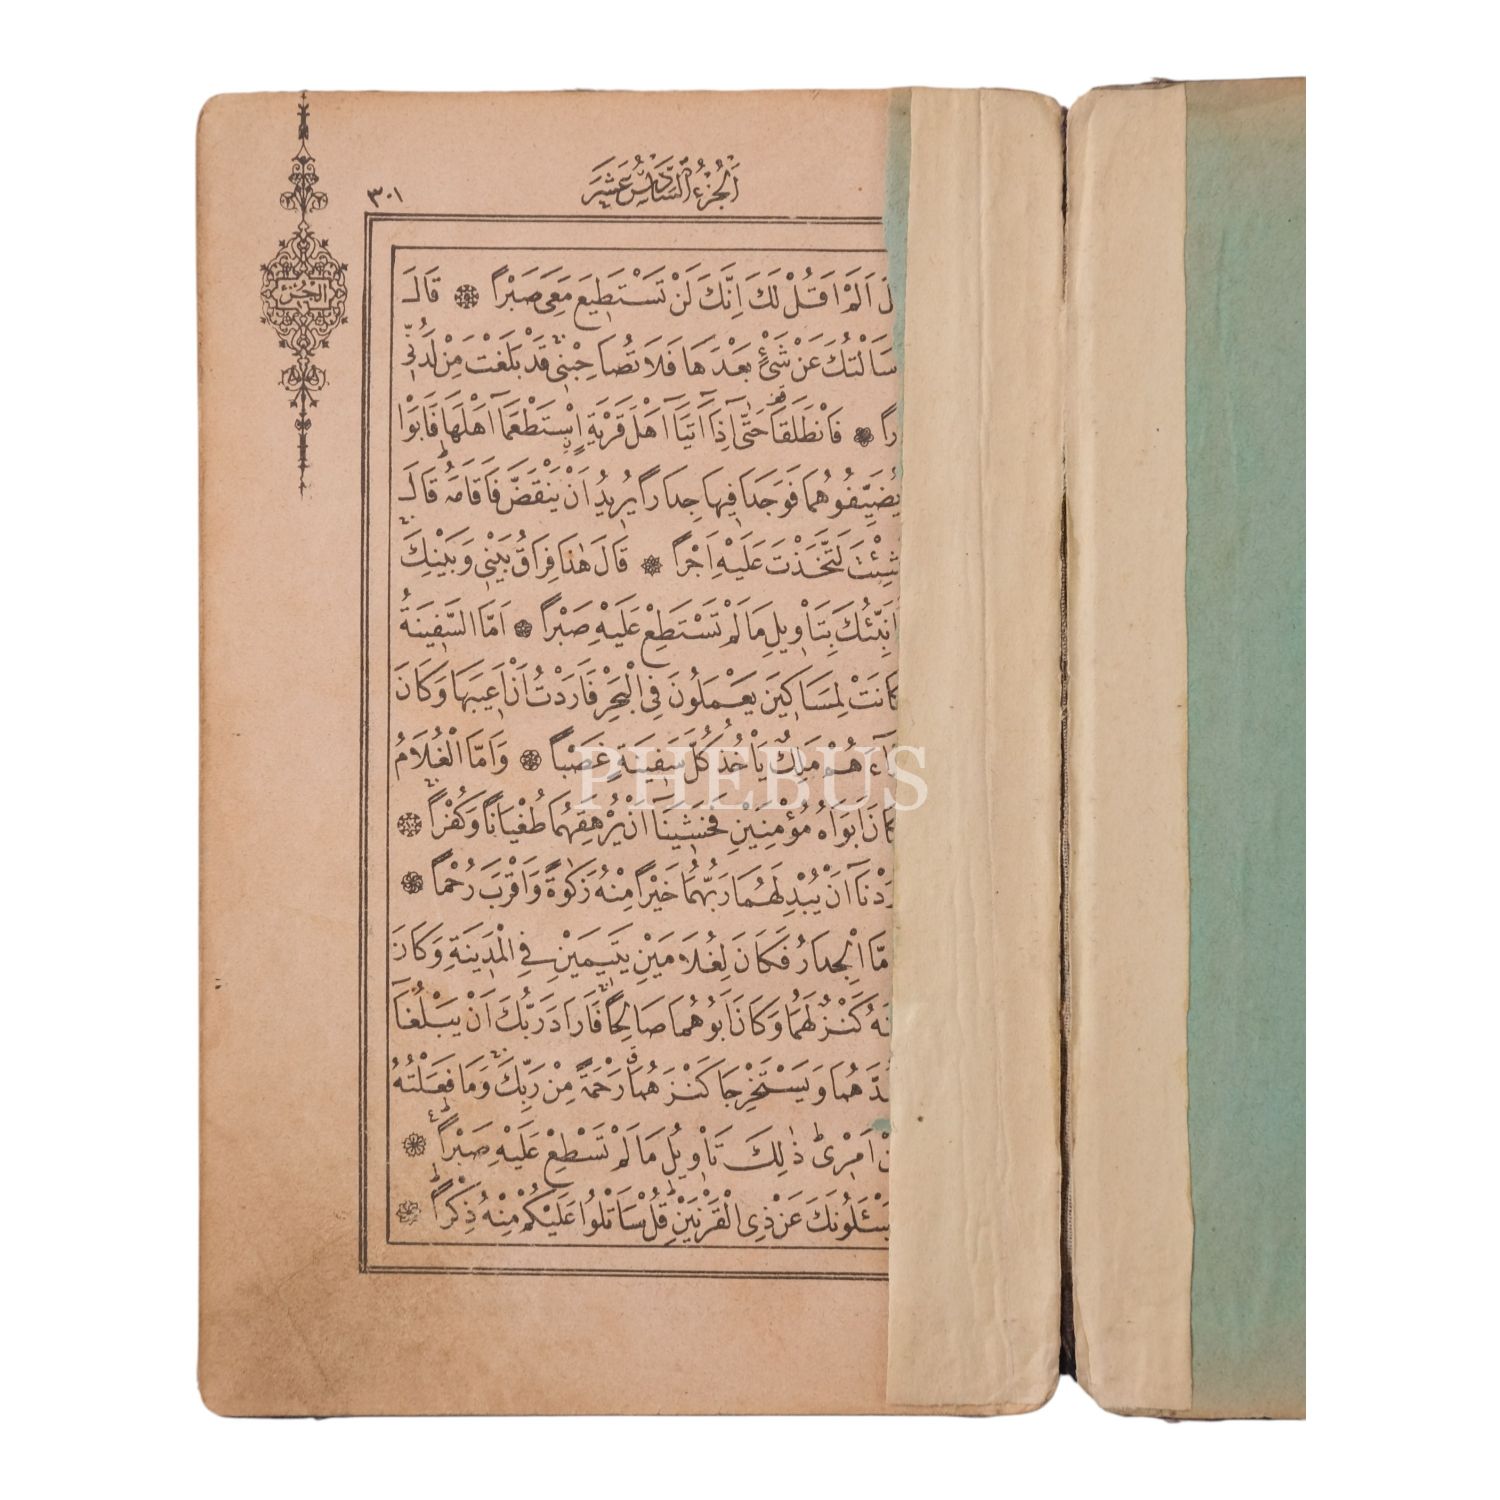 اَلْجُزْءُ السَّادِسَ عَشَرَ
٣٠١
الجزء
١٦
لَ اَلَمْ اَقُلْ لَكَ اِنَّكَ لَنْ تَسْتَطٖيعَ مَعِىَ صَبْراً ۞ قَالَ
سَاَلْتُكَ عَنْ شَىْءٍ بَعْدَهَا فَلَا تُصَاحِبْنٖى قَدْ بَلَغْتَ مِنْ لَدُنّٖى
راً ۞ فَانْطَلَقَا حَتّٰٓى اِذَٓا اَتَيَٓا اَهْلَ قَرْيَةٍ اِسْتَطْعَمَٓا اَهْلَهَا فَاَبَوْا
يُضَيِّفُوهُمَا فَوَجَدَا فٖيهَا جِدَاراً يُرٖيدُ اَنْ يَنْقَضَّ فَاَقَامَهُ قَالَ
شِئْتَ لَتَّخَذْتَ عَلَيْهِ اَجْراً ۞ قَالَ هٰذَا فِرَاقُ بَيْنٖى وَبَيْنِكَ
اُنَبِّئُكَ بِتَاْوٖيلِ مَا لَمْ تَسْتَطِعْ عَلَيْهِ صَبْراً ۞ اَمَّا السَّفٖينَةُ
كَانَتْ لِمَسَاكٖينَ يَعْمَلُونَ فِى الْبَحْرِ فَاَرَدْتُ اَنْ اَعٖيبَهَا وَكَانَ
رَٓاءَهُمْ مَلِكٌ يَاْخُذُ كُلَّ سَفٖينَةٍ غَصْباً ۞ وَاَمَّا الْغُلَامُ
كَانَ اَبَوَاهُ مُؤْمِنَيْنِ فَخَشٖينَٓا اَنْ يُرْهِقَهُمَا طُغْيَاناً وَكُفْراً ۞
رَدْنَٓا اَنْ يُبْدِلَهُمَا رَبُّهُمَا خَيْراً مِنْهُ زَكٰوةً وَاَقْرَبَ رُحْماً ۞
مَّا الْجِدَارُ فَكَانَ لِغُلَامَيْنِ يَتٖيمَيْنِ فِى الْمَدٖينَةِ وَكَانَ
تَهُ كَنْزٌ لَهُمَا وَكَانَ اَبُوهُمَا صَالِحاً فَاَرَادَ رَبُّكَ اَنْ يَبْلُغَٓا
شُدَّهُمَا وَيَسْتَخْرِجَا كَنْزَهُمَا رَحْمَةً مِنْ رَبِّكَ وَمَا فَعَلْتُهُ
نْ اَمْرٖى ذٰلِكَ تَاْوٖيلُ مَا لَمْ تَسْطِعْ عَلَيْهِ صَبْراً ۞
يَسْئَلُونَكَ عَنْ ذِى الْقَرْنَيْنِ قُلْ سَاَتْلُوا عَلَيْكُمْ مِنْهُ ذِكْراً ۞
PHEBUS